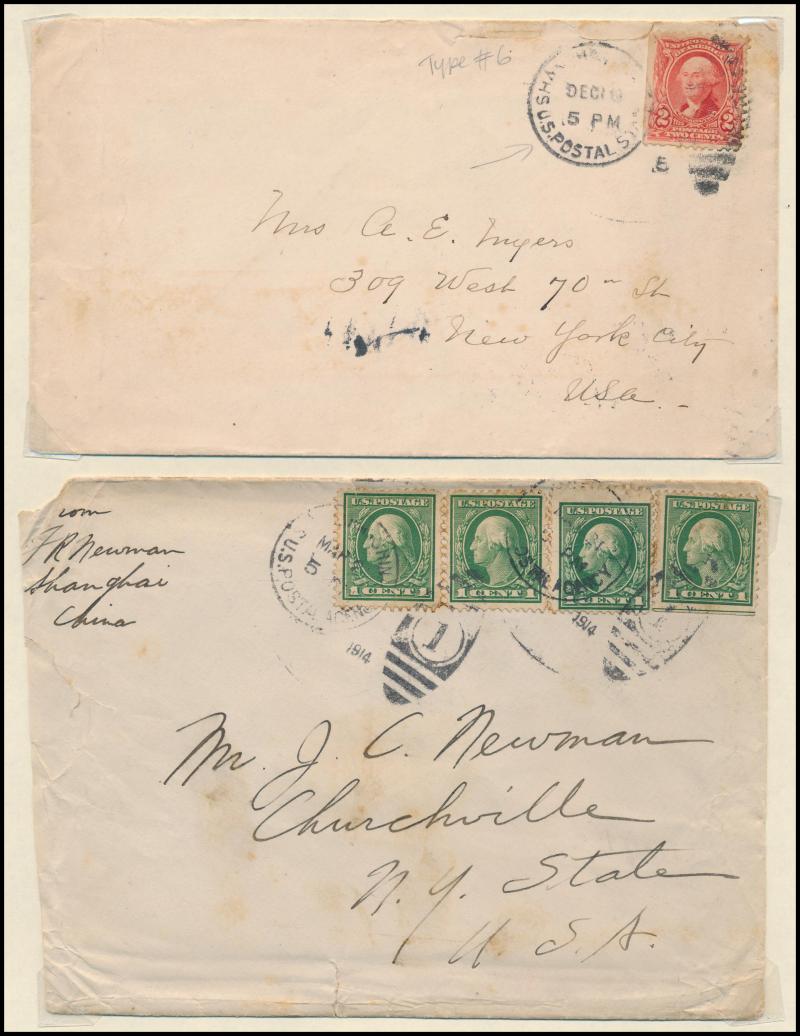 Type #6
DEC
5 PM
U.S. POSTAL
UNITED STATES
OF AMERICA
2 2
POSTAGE
TWO CENTS
Mrs A. E. Myers
309 West 70 St
New York City
USA
F R Newman
Shanghai
China
U.S. POSTAGE U.S. POSTAGE U.S. POSTAGE U.S. POSTAGE
1 CENT 1 1 CENT 1 1 CENT 1 1 CENT 1
MAR
U.S. POSTAL AGENCY
1914
1
1914
Mr. J. C. Newman
Churchville
N. Y. State
U. S. A.